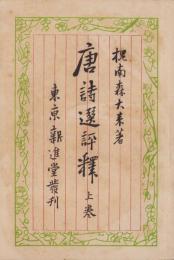 槐南森大來著
唐詩選評釋 上卷
東京 新進堂叢刊